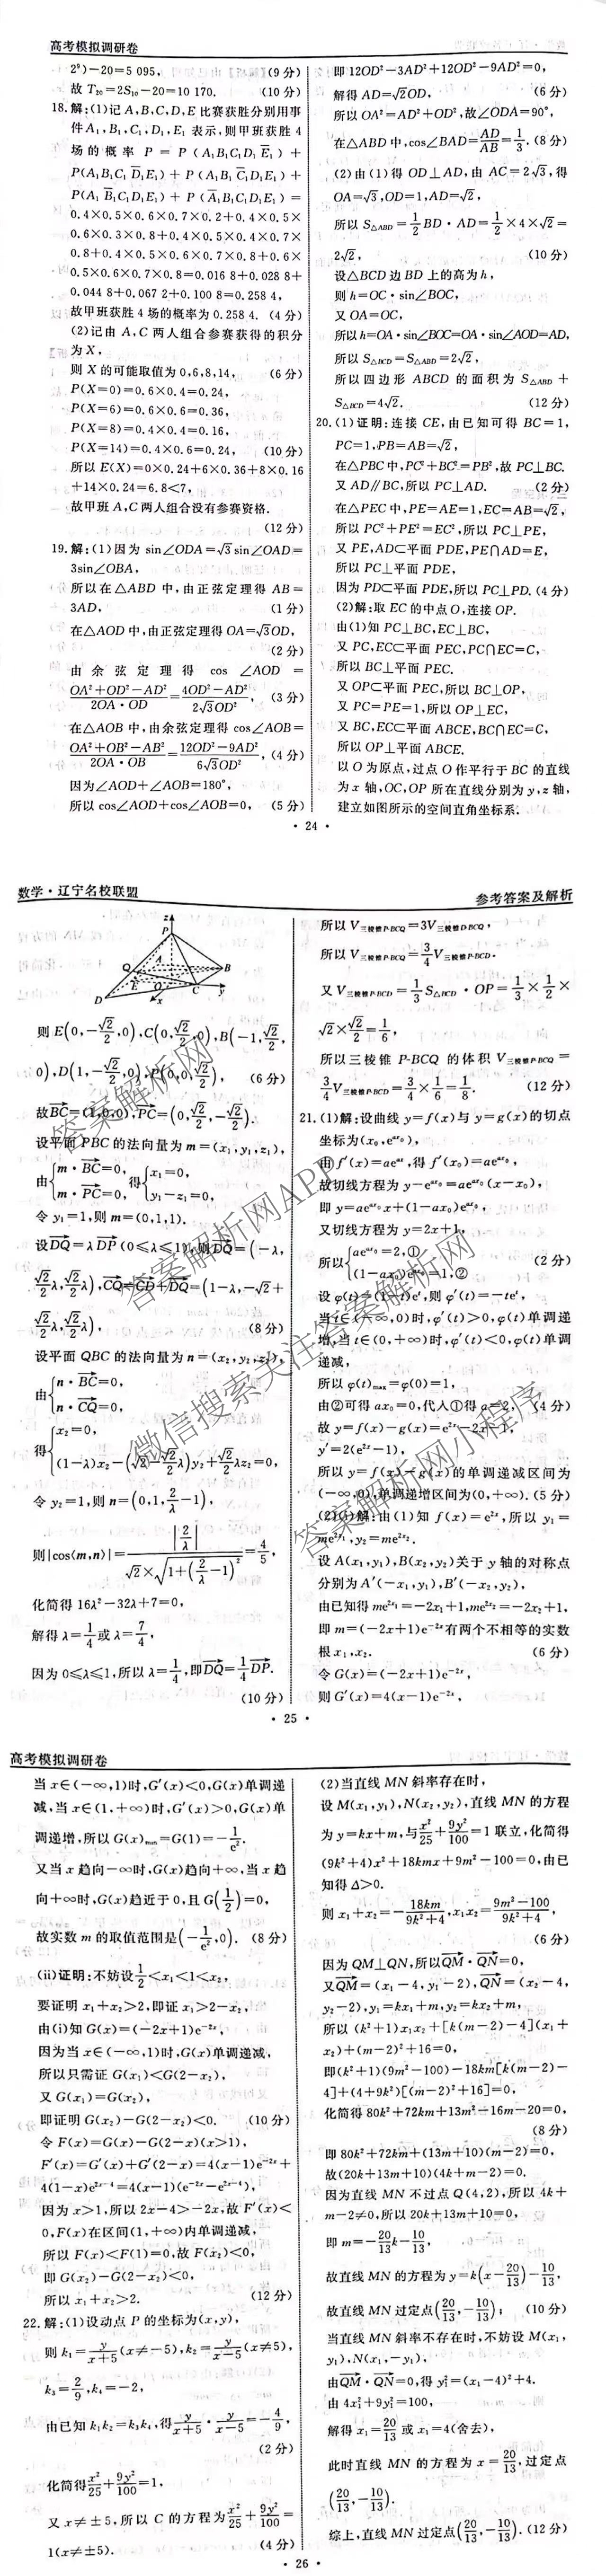 高考模拟调研卷
2⁹)－20＝5 095, (9分)
故 T₂₀＝2S₁₀－20＝10 170. (10分)
18.解:(1)记A,B,C,D,E比赛获胜分别用事
件A₁,B₁,C₁,D₁,E₁ 表示,则甲班获胜4
场的概率 P ＝ P(A₁B₁C₁D₁E̅₁)＋
P(A₁B₁C₁D̅₁E₁)＋P(A₁B₁C̅₁D₁E₁)＋
P(A₁B̅₁C₁D₁E₁)＋P(A̅₁B₁C₁D₁E₁)＝
0.4×0.5×0.6×0.7×0.2＋0.4×0.5×
0.6×0.3×0.8＋0.4×0.5×0.4×0.7×
0.8＋0.4×0.5×0.6×0.7×0.8＋0.6×
0.5×0.6×0.7×0.8＝0.016 8＋0.028 8＋
0.044 8＋0.067 2＋0.100 8＝0.258 4,
故甲班获胜4场的概率为0.258 4. (4分)
(2)记由A,C两人组合参赛获得的积分
为X,
则X的可能取值为0,6,8,14, (6分)
P(X＝0)＝0.6×0.4＝0.24,
P(X＝6)＝0.6×0.6＝0.36,
P(X＝8)＝0.4×0.4＝0.16,
P(X＝14)＝0.4×0.6＝0.24, (10分)
所以E(X)＝0×0.24＋6×0.36＋8×0.16
＋14×0.24＝6.8＜7,
故甲班A,C两人组合没有参赛资格.
(12分)
19.解:(1)因为 sin∠ODA＝√3sin∠OAD＝
3sin∠OBA,
所以在△ABD中,由正弦定理得AB＝
3AD, (1分)
在△AOD中,由正弦定理得OA＝√3OD,
(2分)
由余弦定理得 cos∠AOD＝
(OA²＋OD²－AD²)/(2OA·OD)＝(4OD²－AD²)/(2√3OD²), (3分)
在△AOB中,由余弦定理得cos∠AOB＝
(OA²＋OB²－AB²)/(2OA·OB)＝(12OD²－9AD²)/(6√3OD²), (4分)
因为∠AOD＋∠AOB＝180°,
所以cos∠AOD＋cos∠AOB＝0, (5分)
即12OD²－3AD²＋12OD²－9AD²＝0,
解得AD＝√2OD, (6分)
所以OA²＝AD²＋OD²,故∠ODA＝90°,
在△ABD中,cos∠BAD＝AD/AB＝1/3. (8分)
(2)由(1)得OD⊥AD,由AC＝2√3,得
OA＝√3,OD＝1,AD＝√2,
所以S△ABD＝1/2BD·AD＝1/2×4×√2＝
2√2, (10分)
设△BCD边BD上的高为h,
则h＝OC·sin∠BOC,
又OA＝OC,
所以h＝OA·sin∠BOC＝OA·sin∠AOD＝AD,
所以S△BCD＝S△ABD＝2√2,
所以四边形ABCD的面积为S△ABD＋
S△BCD＝4√2. (12分)
20.(1)证明:连接CE,由已知可得BC＝1,
PC＝1,PB＝AB＝√2,
在△PBC中,PC²＋BC²＝PB²,故PC⊥BC.
又AD∥BC,所以PC⊥AD. (2分)
在△PEC中,PE＝AE＝1,EC＝AB＝√2,
所以PC²＋PE²＝EC²,所以PC⊥PE,
又PE,AD⊂平面PDE,PE∩AD＝E,
所以PC⊥平面PDE,
因为PD⊂平面PDE,所以PC⊥PD. (4分)
(2)解:取EC的中点O,连接OP.
由(1)知PC⊥BC,EC⊥BC,
又PC,EC⊂平面PEC,PC∩EC＝C,
所以BC⊥平面PEC.
又OP⊂平面PEC,所以BC⊥OP,
又PC＝PE＝1,所以OP⊥EC,
又BC,EC⊂平面ABCE,BC∩EC＝C,
所以OP⊥平面ABCE.
以O为原点,过点O作平行于BC的直线
为x轴,OC,OP所在直线分别为y,z轴,
建立如图所示的空间直角坐标系.
·24·
数学·辽宁名校联盟
参考答案及解析
z
P
A
Q
B
E
O
D
C
x
y
则E(0,－√2/2,0),C(0,√2/2,0),B(－1,√2/2,
0),D(1,－√2/2,0),P(0,0,√2/2), (6分)
故BC→＝(1,0,0),PC→＝(0,√2/2,－√2/2).
设平面PBC的法向量为m＝(x₁,y₁,z₁),
由{m·BC→＝0, m·PC→＝0, 得{x₁＝0, y₁－z₁＝0,
令y₁＝1,则m＝(0,1,1).
设DQ→＝λDP→(0≤λ≤1),则DQ→＝(－λ,
√2/2λ,√2/2λ),CQ→＝CD→＋DQ→＝(1－λ,－√2＋
√2/2λ,√2/2λ), (8分)
设平面QBC的法向量为n＝(x₂,y₂,z₂),
由{n·BC→＝0, n·CQ→＝0,
得{x₂＝0, (1－λ)x₂－(√2－√2/2λ)y₂＋√2/2λz₂＝0,
令y₂＝1,则n＝(0,1,2/λ－1),
则|cos⟨m,n⟩|＝|2/λ|/(√2×√(1＋(2/λ－1)²))＝4/5,
化简得16λ²－32λ＋7＝0,
解得λ＝1/4或λ＝7/4,
因为0≤λ≤1,所以λ＝1/4,即DQ→＝1/4DP→.
(10分)
所以V三棱锥P-BCQ＝3V三棱锥D-BCQ,
所以V三棱锥P-BCQ＝3/4V三棱锥P-BCD.
又V三棱锥P-BCD＝1/3S△BCD·OP＝1/3×1/2×
√2×√2/2＝1/6,
所以三棱锥P-BCQ的体积V三棱锥P-BCQ＝
3/4V三棱锥P-BCD＝3/4×1/6＝1/8. (12分)
21.(1)解:设曲线y＝f(x)与y＝g(x)的切点
坐标为(x₀,e^(ax₀)),
由f′(x)＝ae^(ax),得f′(x₀)＝ae^(ax₀),
故切线方程为y－e^(ax₀)＝ae^(ax₀)(x－x₀),
即y＝ae^(ax₀)x＋(1－ax₀)e^(ax₀),
又切线方程为y＝2x＋1,
所以{ae^(ax₀)＝2,① (1－ax₀)e^(ax₀)＝1,② (2分)
设φ(t)＝(1－t)e^t,则φ′(t)＝－te^t,
当t∈(－∞,0)时,φ′(t)＞0,φ(t)单调递
增,当t∈(0,＋∞)时,φ′(t)＜0,φ(t)单调
递减,
所以φ(t)max＝φ(0)＝1,
由②可得ax₀＝0,代入①得a＝2, (4分)
故y＝f(x)－g(x)＝e^(2x)－2x－1,
y′＝2(e^(2x)－1),
所以y＝f(x)－g(x)的单调递减区间为
(－∞,0),单调递增区间为(0,＋∞). (5分)
(2)(i)解:由(1)知f(x)＝e^(2x),所以y₁＝
me^(2x₁),y₂＝me^(2x₂).
设A(x₁,y₁),B(x₂,y₂)关于y轴的对称点
分别为A′(－x₁,y₁),B′(－x₂,y₂),
由已知得me^(2x₁)＝－2x₁＋1,me^(2x₂)＝－2x₂＋1,
即m＝(－2x＋1)e^(－2x)有两个不相等的实数
根x₁,x₂. (6分)
令G(x)＝(－2x＋1)e^(－2x),
则G′(x)＝4(x－1)e^(－2x),
·25·
答案解析网
答案解析网APP
微信搜索关注答案解析网
答案解析网小程序
高考模拟调研卷
当x∈(－∞,1)时,G′(x)＜0,G(x)单调递
减,当x∈(1,＋∞)时,G′(x)＞0,G(x)单
调递增,所以G(x)min＝G(1)＝－1/e².
又当x趋向－∞时,G(x)趋向＋∞,当x趋
向＋∞时,G(x)趋近于0,且G(1/2)＝0,
故实数m的取值范围是(－1/e²,0). (8分)
(ii)证明:不妨设1/2＜x₁＜1＜x₂,
要证明x₁＋x₂＞2,即证x₁＞2－x₂,
由(i)知G(x)＝(－2x＋1)e^(－2x),
因为当x∈(－∞,1)时,G(x)单调递减,
所以只需证G(x₁)＜G(2－x₂),
又G(x₁)＝G(x₂),
即证明G(x₂)－G(2－x₂)＜0. (10分)
令F(x)＝G(x)－G(2－x)(x＞1),
F′(x)＝G′(x)＋G′(2－x)＝4(x－1)e^(－2x)＋
4(1－x)e^(2x－4)＝4(x－1)(e^(－2x)－e^(2x－4)),
因为x＞1,所以2x－4＞－2x,故F′(x)＜
0,F(x)在区间(1,＋∞)内单调递减,
所以F(x)＜F(1)＝0,故F(x₂)＜0,
即G(x₂)－G(2－x₂)＜0,
所以x₁＋x₂＞2. (12分)
22.解:(1)设动点P的坐标为(x,y),
则k₁＝y/(x＋5)(x≠－5),k₂＝y/(x－5)(x≠5),
k₃＝2/9,k₄＝－2,
由已知k₁k₂＝k₃k₄,得y/(x＋5)·y/(x－5)＝－4/9,
(2分)
化简得x²/25＋9y²/100＝1,
又x≠±5,所以C的方程为x²/25＋9y²/100＝
1(x≠±5). (4分)
(2)当直线MN斜率存在时,
设M(x₁,y₁),N(x₂,y₂),直线MN的方程
为y＝kx＋m,与x²/25＋9y²/100＝1联立,化简得
(9k²＋4)x²＋18kmx＋9m²－100＝0,由已
知得Δ＞0.
则x₁＋x₂＝－18km/(9k²＋4),x₁x₂＝(9m²－100)/(9k²＋4),
(6分)
因为QM⊥QN,所以QM→·QN→＝0,
又QM→＝(x₁－4,y₁－2),QN→＝(x₂－4,
y₂－2),y₁＝kx₁＋m,y₂＝kx₂＋m,
所以(k²＋1)x₁x₂＋[k(m－2)－4](x₁＋
x₂)＋(m－2)²＋16＝0,
即(k²＋1)(9m²－100)－18km[k(m－2)－
4]＋(4＋9k²)[(m－2)²＋16]＝0,
化简得80k²＋72km＋13m²－16m－20＝0,
(8分)
即80k²＋72km＋(13m＋10)(m－2)＝0,
故(20k＋13m＋10)(4k＋m－2)＝0.
因为直线MN不过点Q(4,2),所以4k＋
m－2≠0,所以20k＋13m＋10＝0,
即m＝－20/13k－10/13,
故直线MN的方程为y＝k(x－20/13)－10/13,
故直线MN过定点(20/13,－10/13); (10分)
当直线MN斜率不存在时,不妨设M(x₁,
y₁),N(x₁,－y₁),
由QM→·QN→＝0,得y₁²＝(x₁－4)²＋4.
由4x₁²＋9y₁²＝100,
解得x₁＝20/13或x₁＝4(舍去),
此时直线MN的方程为x＝20/13,过定点
(20/13,－10/13).
综上,直线MN过定点(20/13,－10/13). (12分)
·26·